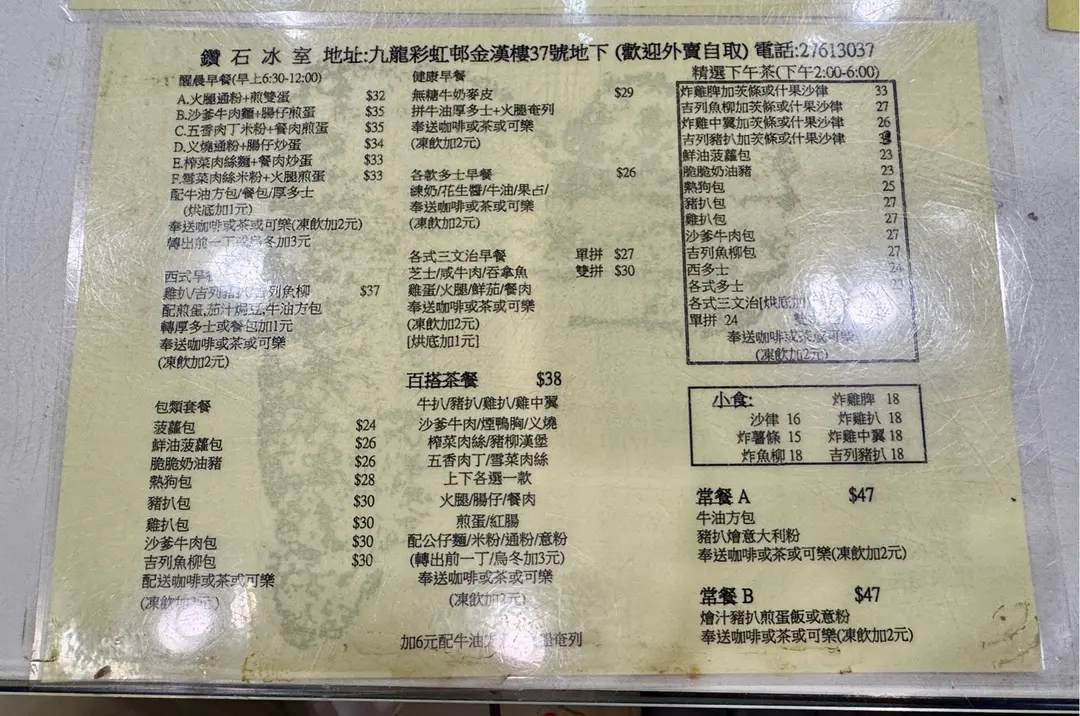 鑽石冰室 地址:九龍彩虹邨金漢樓37號地下 (歡迎外賣自取) 電話:27613037
醒晨早餐(早上6:30-12:00)
A.火腿通粉+煎雙蛋 $32
B.沙爹牛肉麵+腸仔煎蛋 $35
C.五香肉丁米粉+餐肉煎蛋 $35
D.义燒通粉+腸仔炒蛋 $34
E.榨菜肉絲麵+餐肉炒蛋 $33
F.雪菜肉絲米粉+火腿煎蛋 $33
配牛油方包/餐包/厚多士
(烘底加1元)
奉送咖啡或茶或可樂(凍飲加2元)
轉出前一丁或烏冬加3元
西式早
雞扒/吉列豬扒/吉列魚柳 $37
配煎蛋,茄汁焗豆,牛油方包
轉厚多士或餐包加1元
奉送咖啡或茶或可樂
(凍飲加2元)
包類套餐
菠蘿包 $24
鮮油菠蘿包 $26
脆脆奶油豬 $26
熱狗包 $28
豬扒包 $30
雞扒包 $30
沙爹牛肉包 $30
吉列魚柳包 $30
配送咖啡或茶或可樂
(凍飲加2元)
健康早餐
無糖牛奶麥皮 $29
拼牛油厚多士+火腿奄列
奉送咖啡或茶或可樂
(凍飲加2元)
各款多士早餐 $26
練奶/花生醬/牛油/果占/
奉送咖啡或茶或可樂
(凍飲加2元)
各式三文治早餐 單拼 $27
芝士/咸牛肉/吞拿魚 雙拼 $30
雞蛋/火腿/鮮茄/餐肉
奉送咖啡或茶或可樂
(凍飲加2元)
[烘底加1元]
百搭茶餐 $38
牛扒/豬扒/雞扒/雞中翼
沙爹牛肉/煙鴨胸/义燒
榨菜肉絲/豬柳漢堡
五香肉丁/雪菜肉絲
上下各選一款
火腿/腸仔/餐肉
煎蛋/紅腸
配公仔麵/米粉/通粉/意粉
(轉出前一丁/烏冬加3元)
奉送咖啡或茶或可樂
(凍飲加2元)
加6元配牛油 奄列
精選下午茶(下午2:00-6:00)
炸雞髀加茨條或什果沙律 33
吉列魚柳加茨條或什果沙律 27
炸雞中翼加茨條或什果沙律 26
吉列豬扒加茨條或什果沙律
鮮油菠蘿包 23
脆脆奶油豬 23
熱狗包 25
豬扒包 27
雞扒包 27
沙爹牛肉包 27
吉列魚柳包 27
西多士 24
各式多士
各式三文治[烘底加
單拼 24
奉送咖啡或茶或可樂
(凍飲加2元)
小食: 炸雞髀 18
沙律 16 炸雞扒 18
炸薯條 15 炸雞中翼 18
炸魚柳 18 吉列豬扒 18
常餐 A $47
牛油方包
豬扒燴意大利粉
奉送咖啡或茶或可樂(凍飲加2元)
常餐 B $47
燴汁豬扒煎蛋飯或意粉
奉送咖啡或茶或可樂(凍飲加2元)